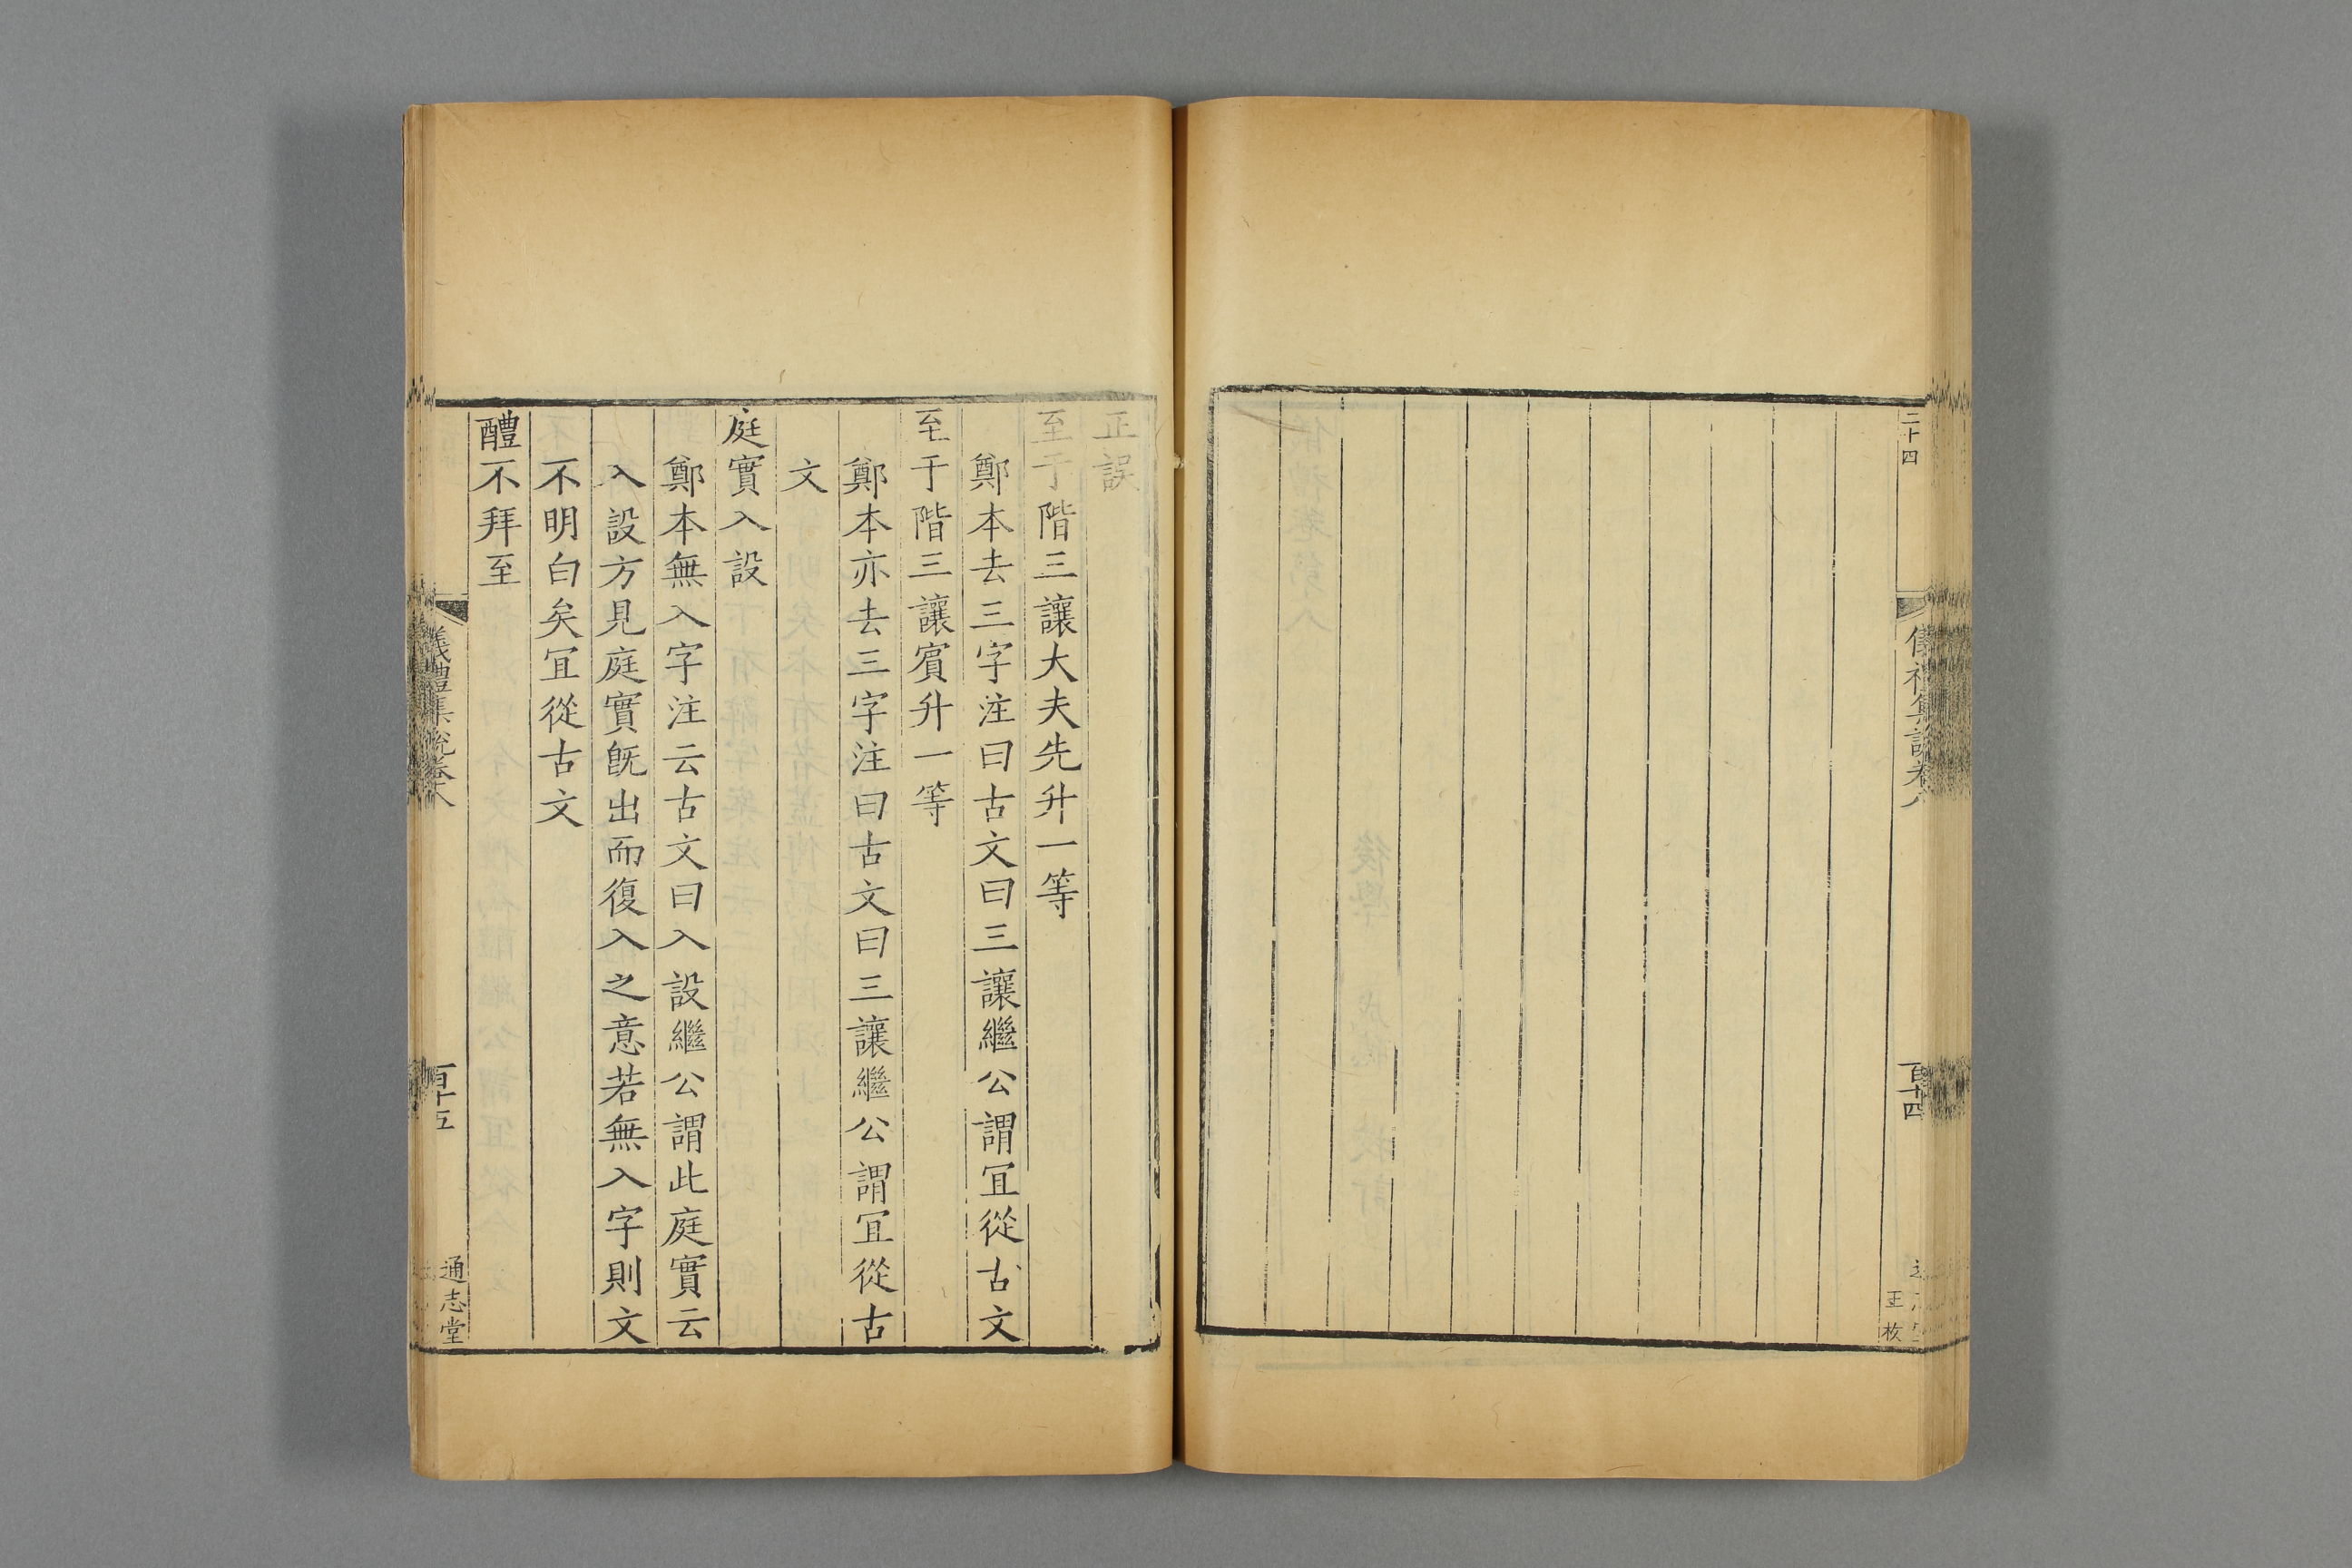 二十四
儀禮集說卷八
百十四
正誤
至于階三讓大夫先升一等
鄭本去三字注曰古文曰三讓繼公謂宜從古文
至于階三讓賓升一等
鄭本亦去三字注曰古文曰三讓繼公謂宜從古
文
庭實入設
鄭本無入字注云古文曰入設繼公謂此庭實云
入設方見庭實旣出而復入之意若無入字則文
不明白矣宜從古文
醴不拜至
儀禮集說卷八
百十五
通志堂